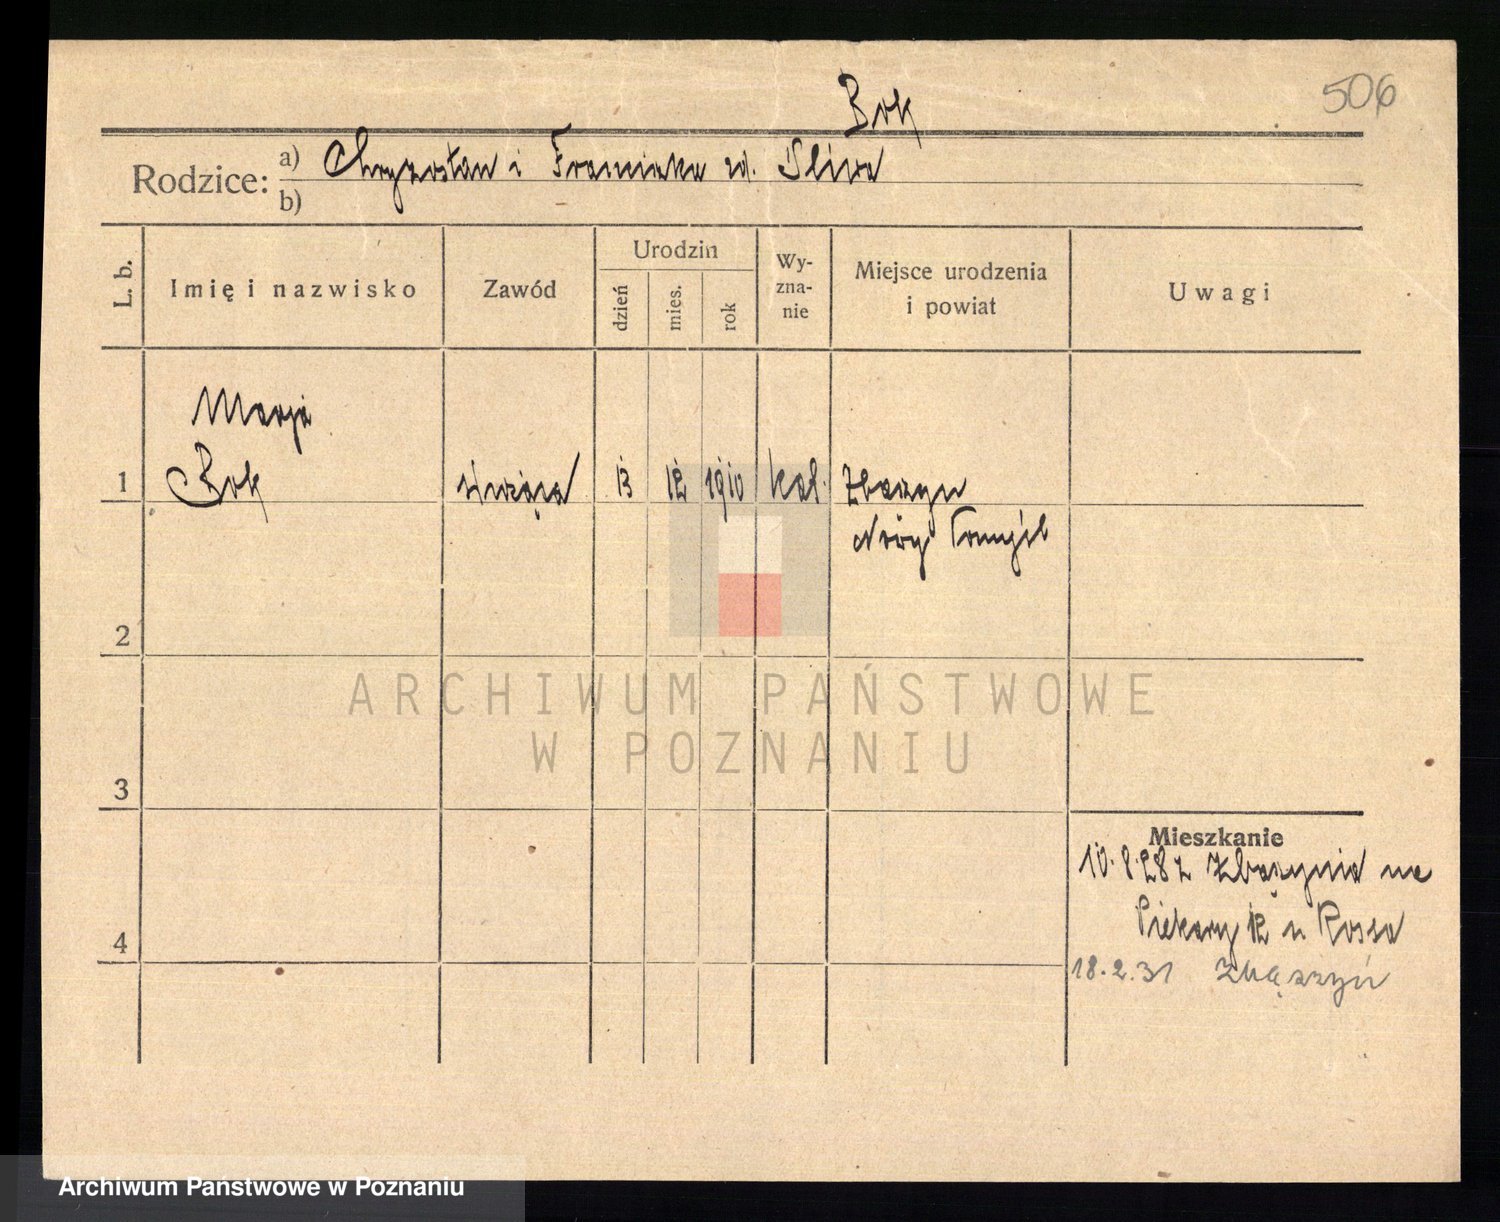 506
Bok
Rodzice: a) Chryzostom i Franciszka zd. Śliwa
b)
L. b. Imię i nazwisko Zawód Urodzin dzień mies. rok Wy-zna-nie Miejsce urodzenia i powiat Uwagi
Marja
1 Bok służąca 13 12 1910 kat. Zbąszyń
Nowy Tomyśl
2
ARCHIWUM PAŃSTWOWE
W POZNANIU
3
Mieszkanie
10.8.28 z Zbąszynia na
Piekary 12 u Rossa
4
18.2.31 Zbąszyń
Archiwum Państwowe w Poznaniu